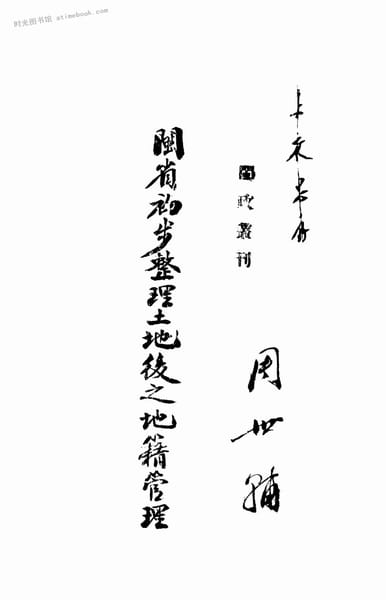 时光图书馆 atimebook.com
叢刊
周世輔
閩省初步整理土地後之地籍管理